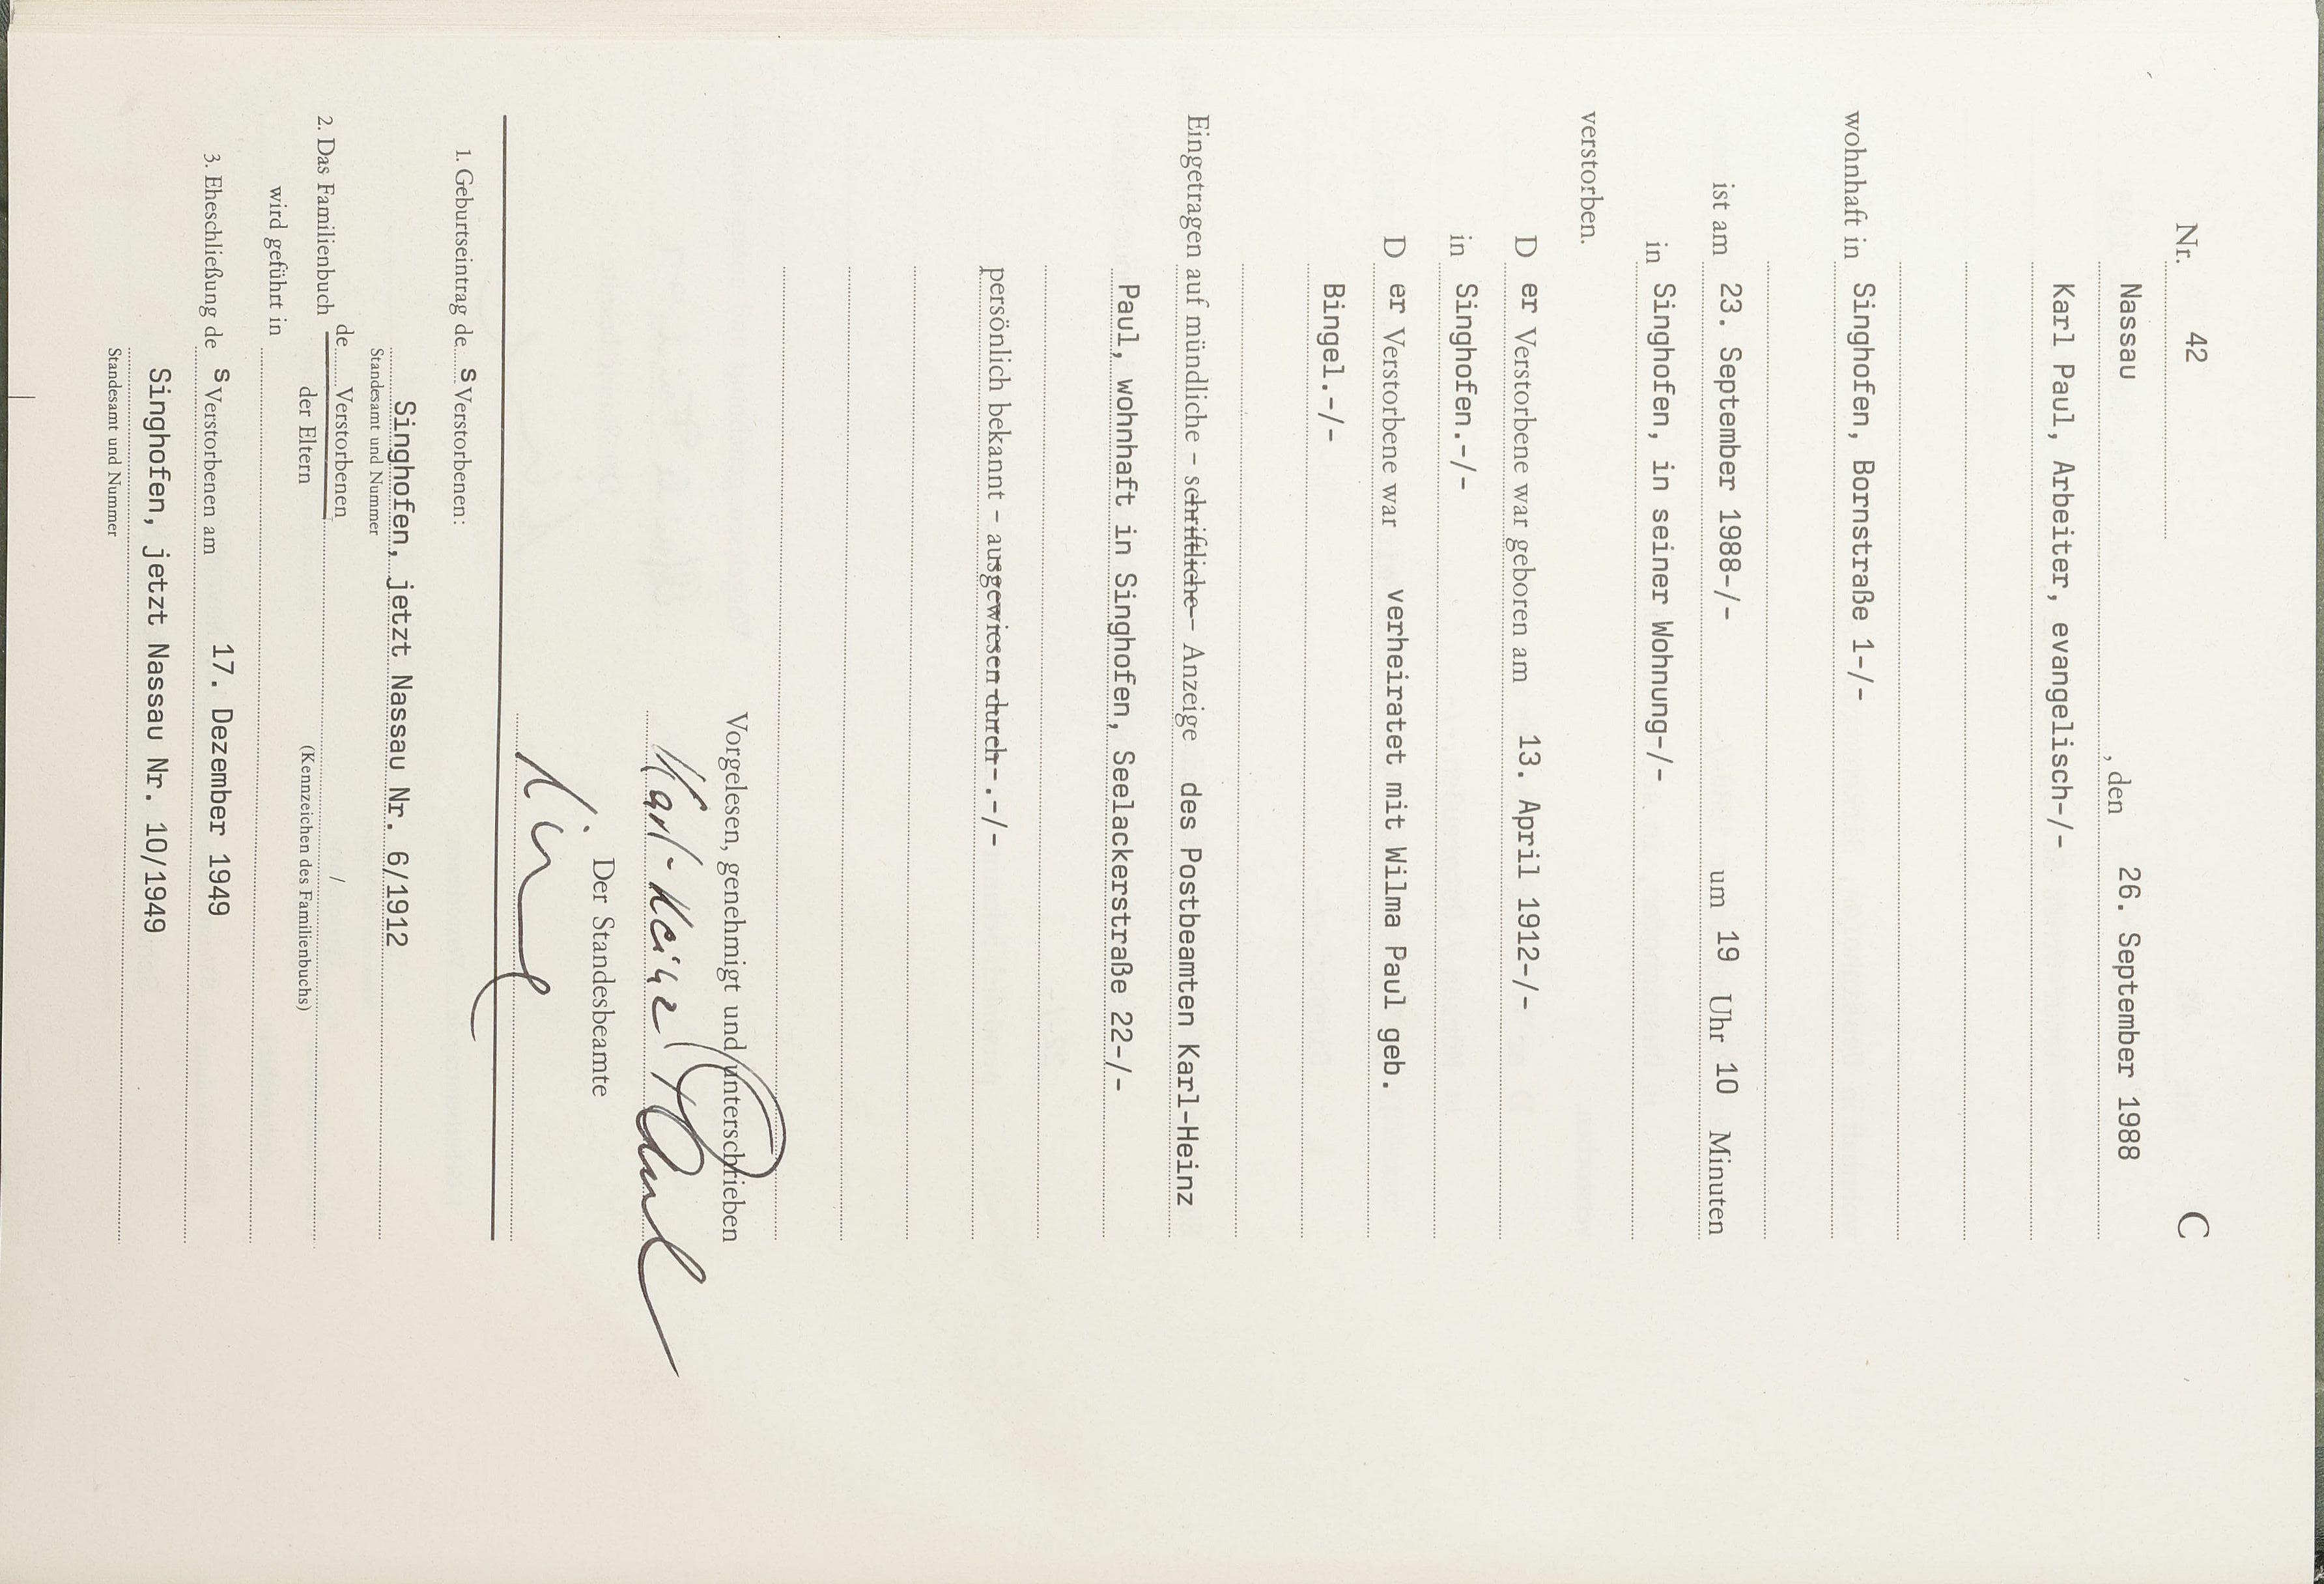 Nr. 42 C
Nassau , den 26. September 1988
Karl Paul, Arbeiter, evangelisch-/-
wohnhaft in Singhofen, Bornstraße 1-/-
ist am 23. September 1988-/- um 19 Uhr 10 Minuten
in Singhofen, in seiner Wohnung-/-
verstorben.
D er Verstorbene war geboren am 13. April 1912-/-
in Singhofen.-/-
D er Verstorbene war verheiratet mit Wilma Paul geb.
Bingel.-/-
Eingetragen auf mündliche - schriftliche - Anzeige des Postbeamten Karl-Heinz
Paul, wohnhaft in Singhofen, Seelackerstraße 22-/-
persönlich bekannt - ausgewiesen durch-.-/-
Vorgelesen, genehmigt und unterschrieben
Karl-Heinz Paul
Der Standesbeamte
1. Geburtseintrag de s Verstorbenen:
Singhofen, jetzt Nassau Nr. 6/1912
Standesamt und Nummer
2. Das Familienbuch de Verstorbenen /
der Eltern (Kennzeichen des Familienbuchs)
wird geführt in
3. Eheschließung de s Verstorbenen am 17. Dezember 1949
Singhofen, jetzt Nassau Nr. 10/1949
Standesamt und Nummer